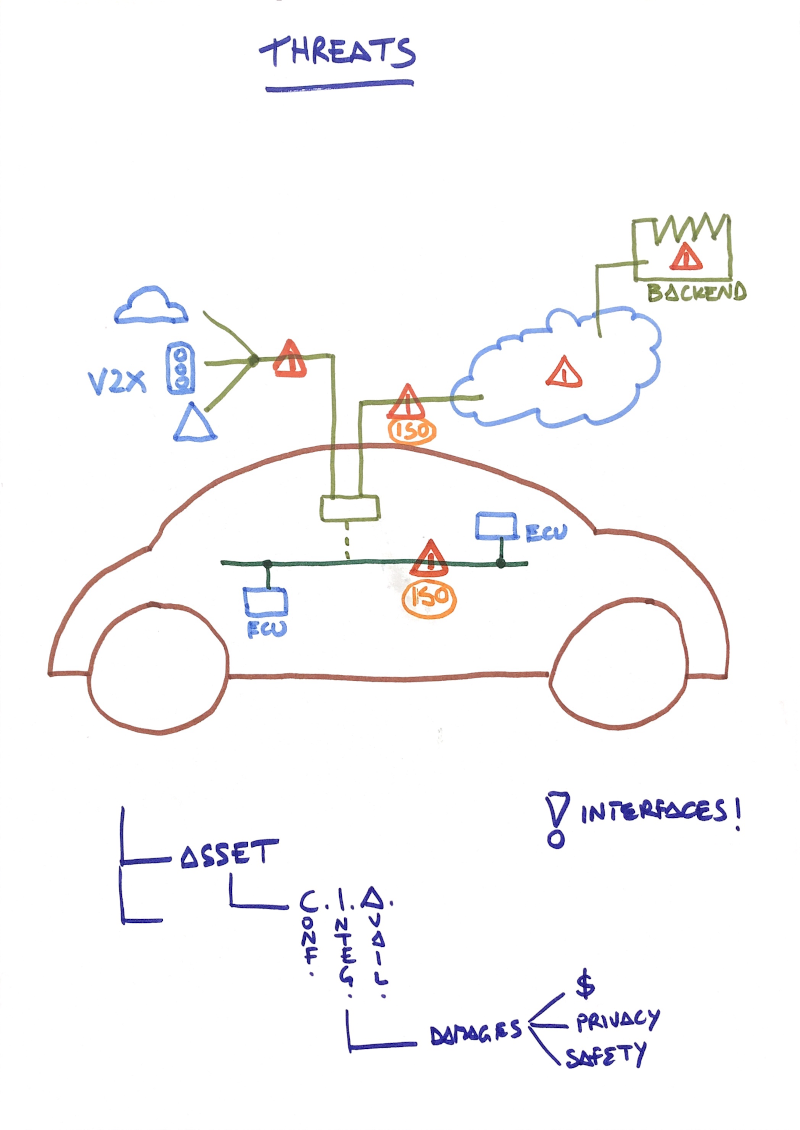 THREATS
BACKEND
V2X
ISO
ECU
ISO
ECU
INTERFACES!
ASSET
C.I.A.
CONF.
INTEG.
AVAIL.
DAMAGES
$
PRIVACY
SAFETY